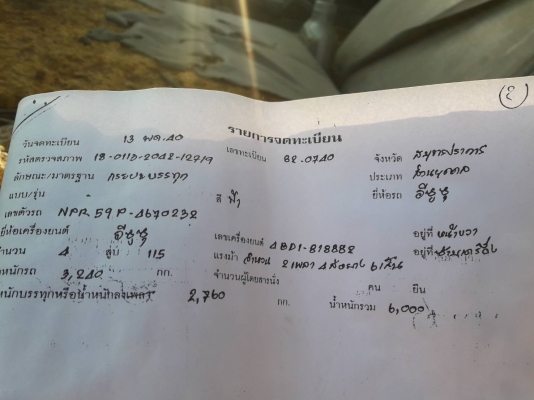 รายการจดทะเบียน
วันจดทะเบียน 13 พ.ค. 40 เลขทะเบียน 82-0740 จังหวัด สมุทรปราการ
รหัสตรวจสภาพ 18-011D-2042-12719 ประเภท ส่วนบุคคล
ลักษณะ/มาตรฐาน กระบะบรรทุก ยี่ห้อรถ อีซูซุ
แบบ/รุ่น สี ฟ้า
เลขตัวรถ NPR 59P-4670232 อยู่ที่ หน้าขวา
ยี่ห้อเครื่องยนต์ อีซูซุ เลขเครื่องยนต์ 4BD1-818882 อยู่ที่
จำนวน 4 สูบ 115 แรงม้า จำนวน 2 เพลา 4 ล้อยาง 6 เส้น
น้ำหนักรถ 3,240 กก. จำนวนผู้โดยสารนั่ง คน ยืน
น้ำหนักบรรทุกหรือน้ำหนักลงเพลา 2,760 กก. น้ำหนักรวม 6,000